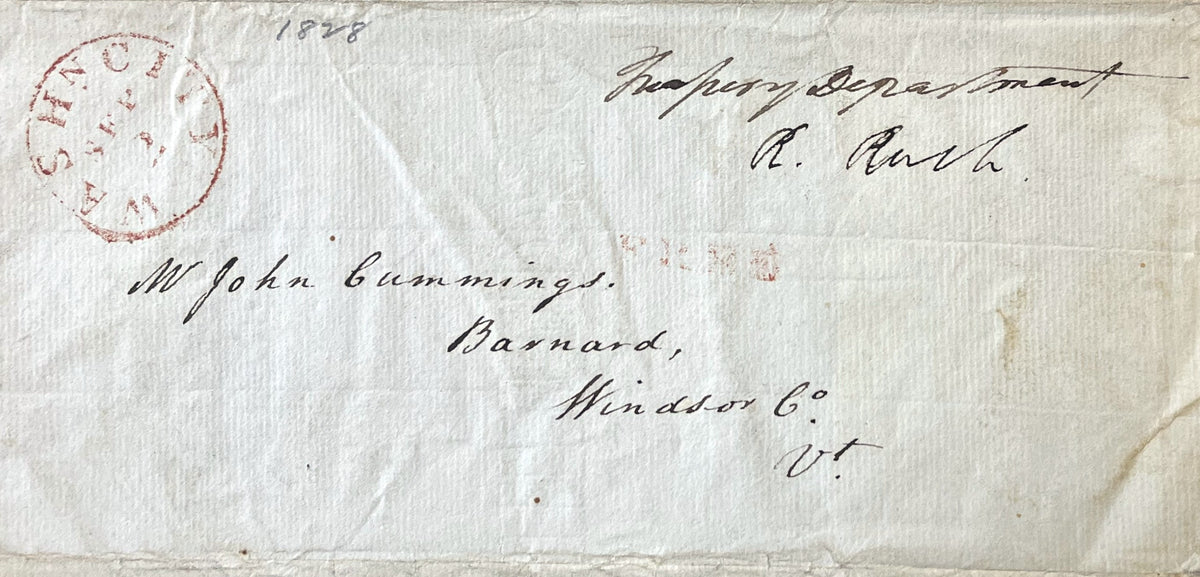 1828
WASHN CITY
SEP
Treasury Department
R. Rush
Mr John Cummings.
Barnard,
Windsor Co.
Vt.